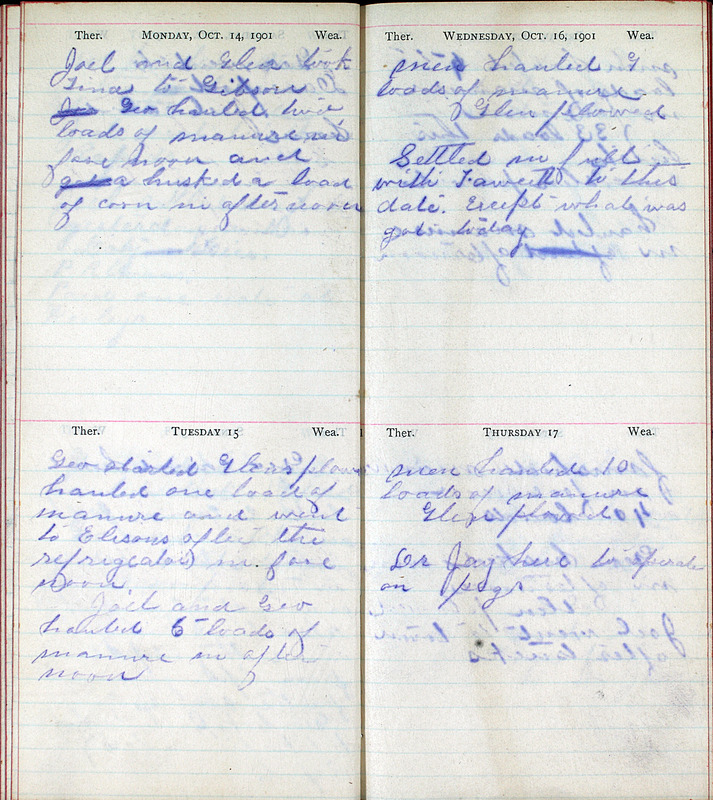 Ther. MONDAY, OCT. 14, 1901 Wea.
Joel and Glen took
Tina to Gibson
Geo hauled two
loads of manure in
fore noon and
husked a load
of corn in after noon
Ther. TUESDAY 15 Wea.
Geo started Glens plow
hauled one load of
manure and went
to Elisons after the
refrigeator in fore
noon
Joel and Geo
hauled 6 loads of
manure in after
noon
Ther. WEDNESDAY, OCT. 16, 1901 Wea.
men hauled 9
loads of manure
Glen plowed
Settled in full
with Fawcett to this
date. Except what was
got today
Ther. THURSDAY 17 Wea.
men hauled 10
loads of manure
Glen plowed
Dr Jay here to operate
on pegs